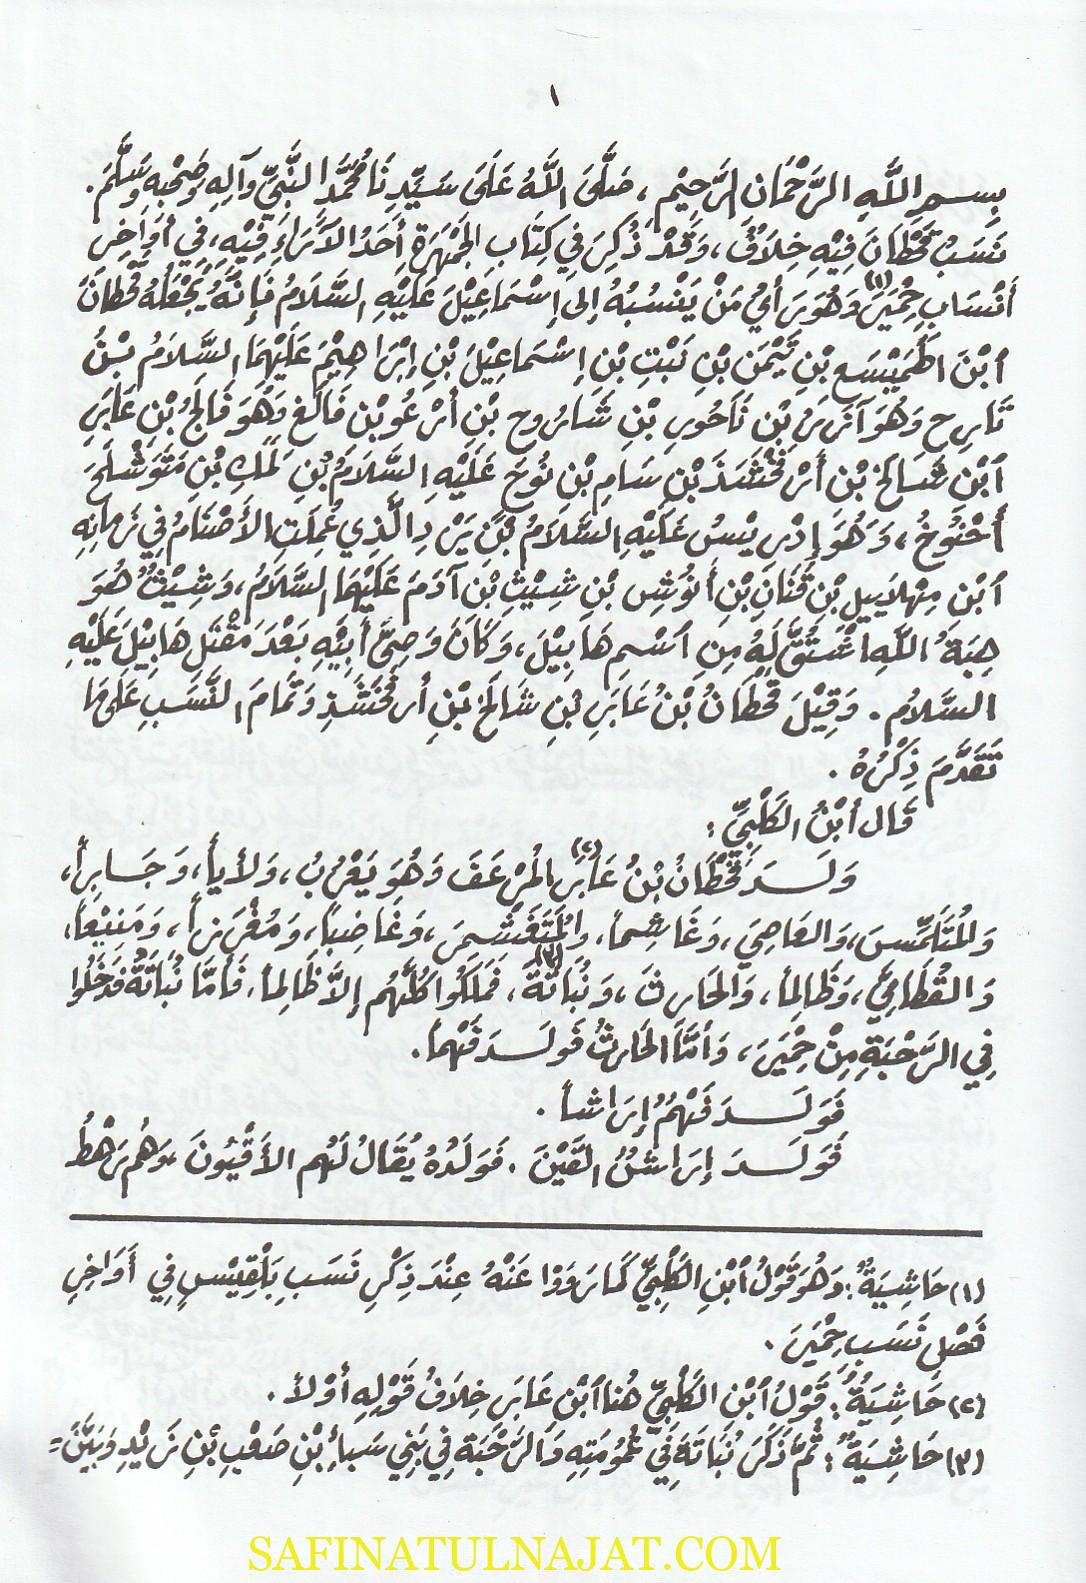 ١
بِسمِ اللَّهِ الرَّحْمَانِ الرَّحِيْمِ، صَلَّى اللَّهُ عَلَى سَيِّدِنَا مُحَمَّدٍ النَّبِيِّ وَآلِهِ وَصَحْبِهِ وَسَلَّمَ.
نَسَبُ قَحْطَانَ فِيْهِ خِلَافٌ، وَقَدْ ذُكِرَ فِي كِتَابِ الجَمْهَرَةِ أَحَدُ الآرَاءِ فِيْهِ، فِي أَوَاخِرِ
أَنْسَابِ حِمْيَرَ(١) وَهُوَ رَأيُ مَنْ يَنْسُبُهُ إلى إِسْمَاعِيْلَ عَلَيْهِ السَّلَامُ فَإِنَّهُ يَجْعَلُهُ قَحْطَانَ
ٱبْنَ الهَمَيْسَعِ بْنِ تَيْمَنَ بْنِ نَبْتِ بْنِ إِسْمَاعِيْلَ بْنِ إِبْرَاهِيْمَ عَلَيْهِمَا السَّلَامُ بْنُ
تَارِحِ وَهُوَ آزَرُ بْنِ نَاحُورِ بْنِ شَارُوحِ بْنِ أَرْغُو بْنِ فَالَغِ وَهُوَ فَالِجُ بْنِ عَابَرِ
ٱبْنِ شَالَخَ بْنِ أَرْفَخْشَذَ بْنِ سَامِ بْنِ نُوحَ عَلَيْهِ السَّلَامُ بْنِ لَمَكِ بْنِ مَتُوَشْلَحَ
أَخْنُوخُ، وَهُوَ إِدْرِيْسُ عَلَيْهِ السَّلَامُ بْنَ يَرْدِ الَّذِي عُمِلَتِ الأَصْنَامُ فِي زَمَانِهِ
ٱبْنِ مِهْلَايِيلِ بْنِ قَنَانِ بْنِ أَنُوشِ بْنِ شِيْثِ بْنِ آدَمَ عَلَيْهِمَا السَّلَامُ، وَشِيْثُ هُوَ
هِبَةُ اللَّهِ ٱشْتَقَّ لَهُ مِنِ ٱسْمِ هَابِيْلَ، وَكَانَ وَصِيَّ أَبِيْهِ بَعْدَ مَقْتَلِ هَابِيْلَ عَلَيْهِ
السَّلَامُ. وَقِيْلَ قَحْطَانُ بْنُ عَابَرِ بْنِ شَالَخَ بْنِ أرفَخْشَذِ وَتَمَامَ النَّسَبِ عَلَى مَا
تَقَدَّمَ ذِكْرُهُ.
قَال ٱبْنُ الكَلْبِيِّ:
وَلَـدَ قَحْطَانُ بْنُ عَابَرِ(٢) المُرْعَفَ وَهُوَ يَعْرُبُ، وَلأياً، وَجَابِراً،
وَالمُتَلَمِّسَ، وَالعَاصِيَ، وَغَاشِماً، وَالمُتَغَشْمِرَ، وَغَاضِباً، وَمُعْزِزاً، وَمَنِيْعاً،
وَالقُطَامِيَّ، وَظَالِماً، وَالحَارِثَ، وَنُبَاتَةَ(٣)، فَهَلَكُوا كُلُّهُم إِلَّا ظَالِماً. فَأمَّا نُبَاتَةُ فَدَخَلُوا
فِي الرَّحْبَةِ مِنْ حِمْيَرَ، وَأمَّا الحَارِثُ فَوَلَـدَ فَهْماً.
فَوَلَـدَ فَهْمُ إِرَاشاً.
فَوَلَـدَ إِرَاشُ القَيْنَ. فَوَلَدُهُ يُقَالُ لَهُم الأَقْيُونَ، وَهُم رَهْطُ
(١) حَاشِيَةٌ: وَهُوَ قَوْلُ ٱبْنِ الكَلْبِيِّ كَمَا رَوَوْا عَنْهُ عِنْدَ ذِكْرِ نَسَبِ بِلْقِيْسِ فِي أَوَاخِرِ
فَصْلِ نَسَبِ حِمْيَرَ.
(٢) حَاشِيَةٌ: قَوْلُ ٱبْنِ الكَلْبِيِّ هُنَا ٱبْنِ عَابَرِ خِلَافُ قَوْلِهِ أَوْلاً.
(٣) حَاشِيَةٌ: ثُمَّ ذَكَرَ نُبَاتَةَ فِي عُمُومَتِهِ وَالرَّحْبَةَ فِي بَنِي سَبَأِ بْنِ صَعْبِ بْنِ زَيْدِ وَبَيَّنَ =
SAFINATULNAJAT.COM